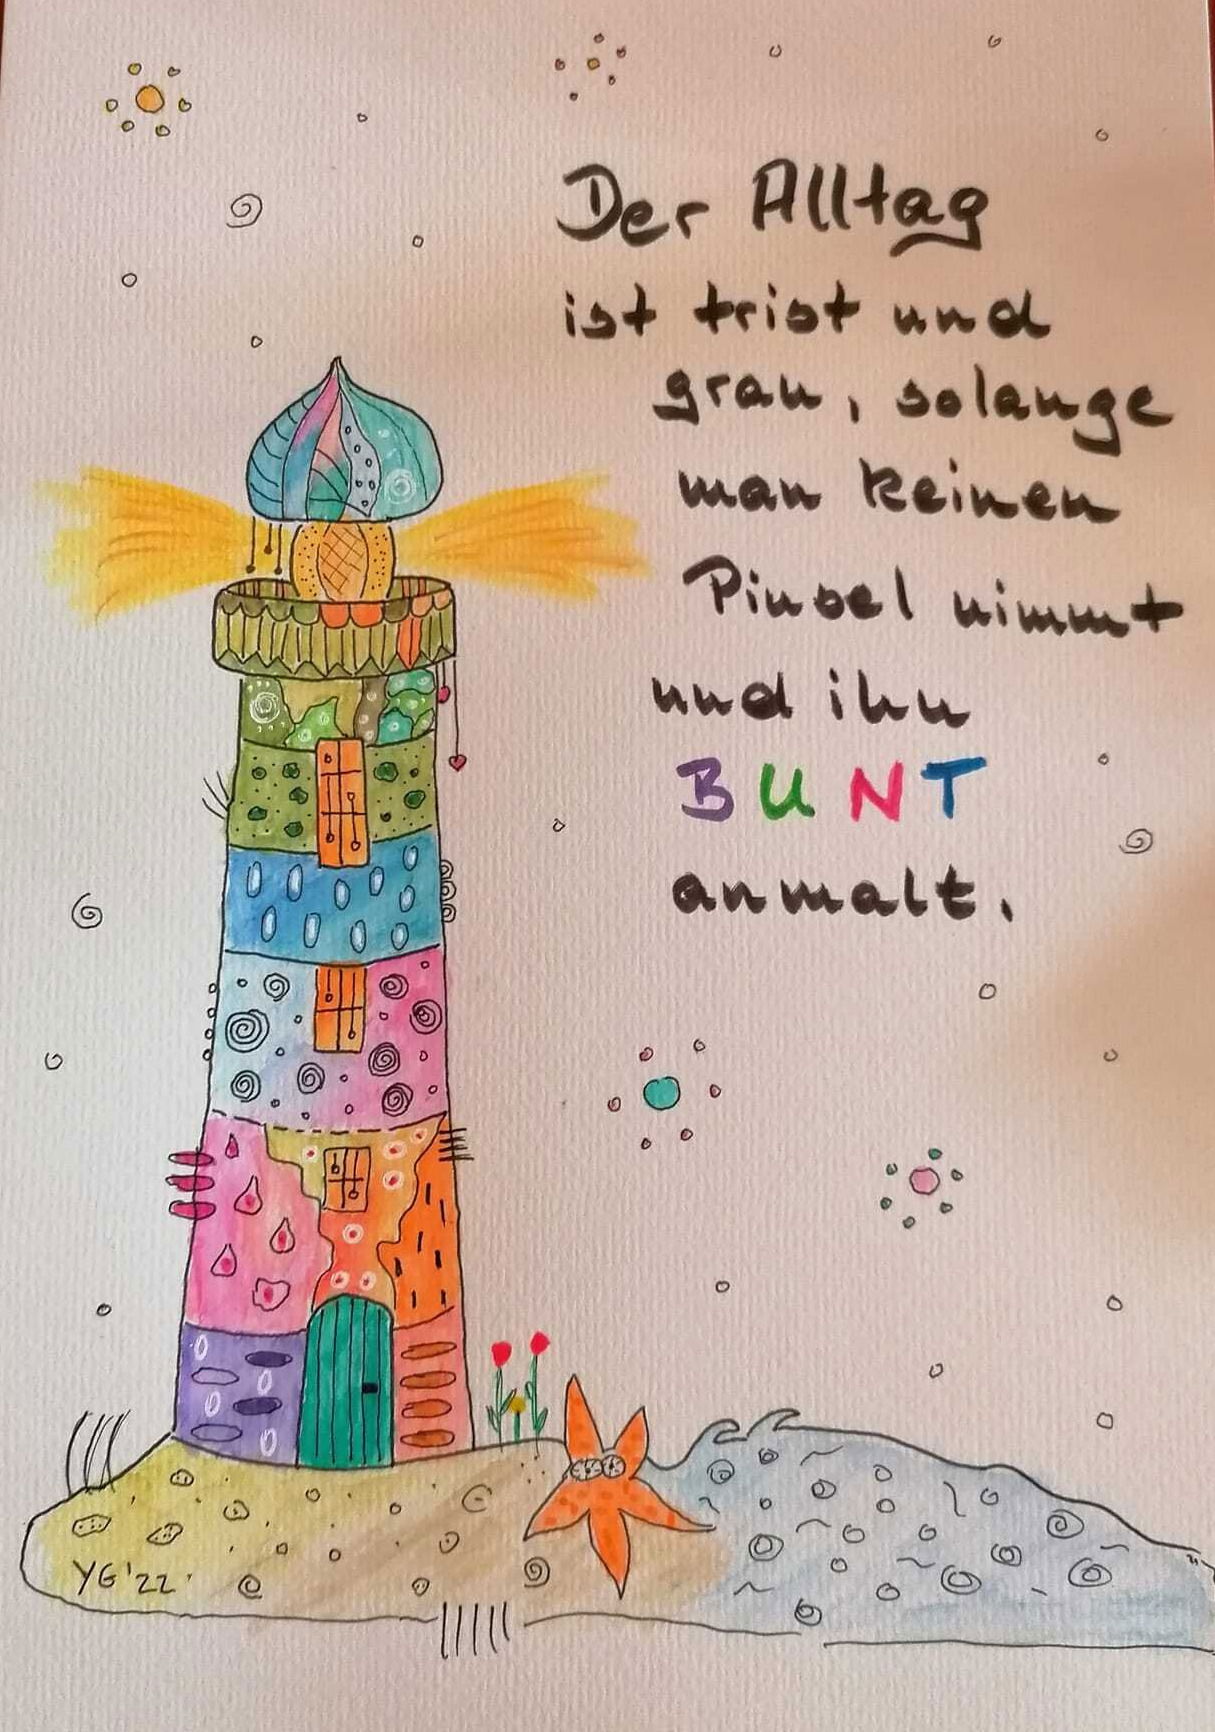 Der Alltag
ist trist und
grau, solange
man keinen
Pinsel nimmt
und ihn
BUNT
anmalt.
YG '22